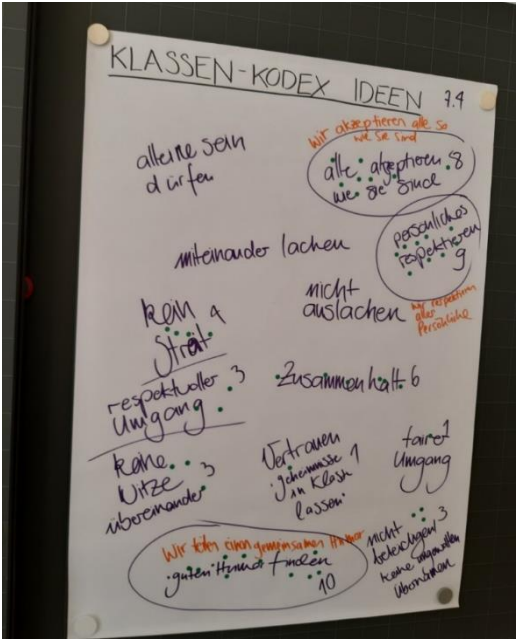 KLASSEN-KODEX IDEEN 7.4
alleine sein
dürfen
Wir akzeptieren alle so
wie sie sind
alle akzeptieren 8
wie sie sind
miteinander lachen
persönliches
respektieren
9
nicht
auslachen
wir respektieren
alles
Persönliche
kein 4
Strät
respektvoller 3
Umgang
Zusammenhalt 6
keine
Witze 3
übereinander
Vertrauen
"geheimnisse 1
in Klasse
lassen"
fairer 1
Umgang
Wir einen gemeinsamen Humor
guten Humor finden
10
nicht 3
beleidigen
keine